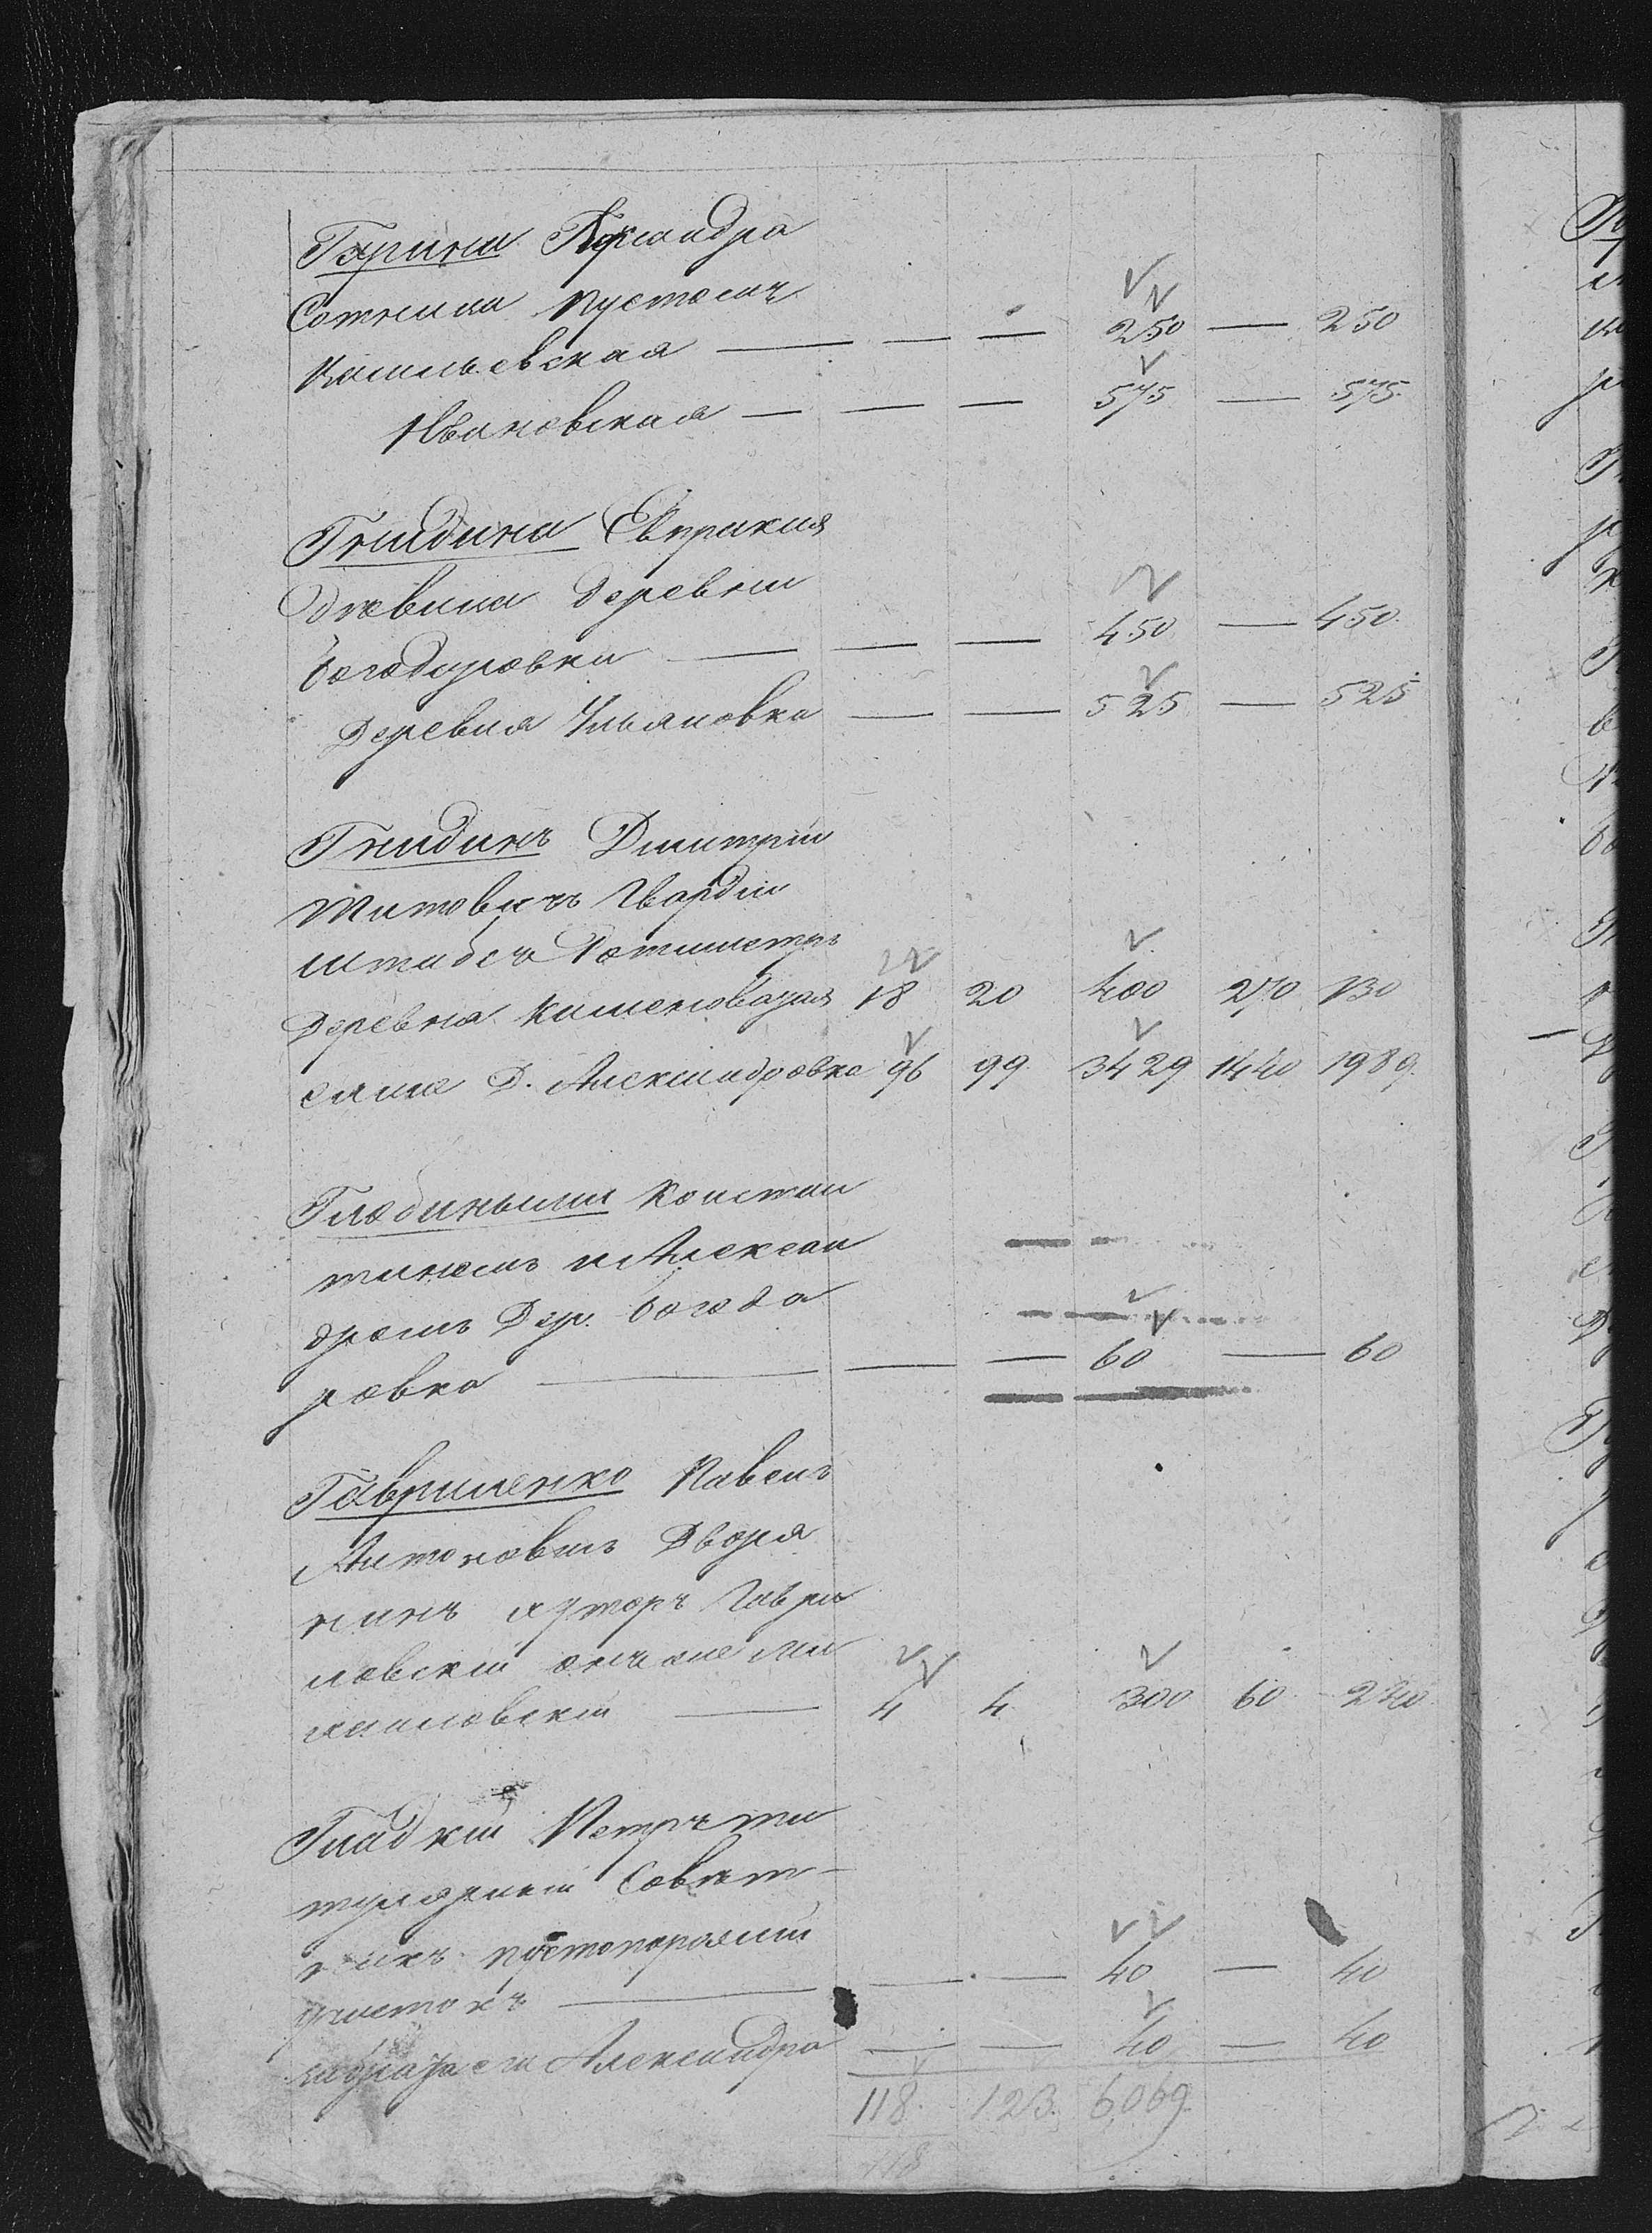 Гурина Александра
Сотника пустошь
Васильевская — — — 250 — 250
Ивановская — — — 575 — 575.
Гнидина Евпраксия
Девица деревни
Богодаровки — — — 450 — 450.
Деревня Ульяновка — — 525 — 525
Гнидинъ Дмитрій
Титовичъ Гвардіи
Штабсъ Ротмистръ
Деревня 18 20 400 270 130
Д. Александровка 96 99. 3429 1440 1989.
Глобиными Констан
тиномъ и Алексан
дромъ Дер. Богода
ровка — — — 60 — 60
Гавриленко Павелъ
Антоновичъ Дворя
нинъ хуторъ Гаври
ловскій онъ же Ми
хайловскій — 4 4. 300 60. 240.
Гладкій Петръ ти
тулярный Совѣт-
никъ пустопорожній
участокъ — — — 40 — 40
Александра — — 40 — 40
118. 123. 6069.
118